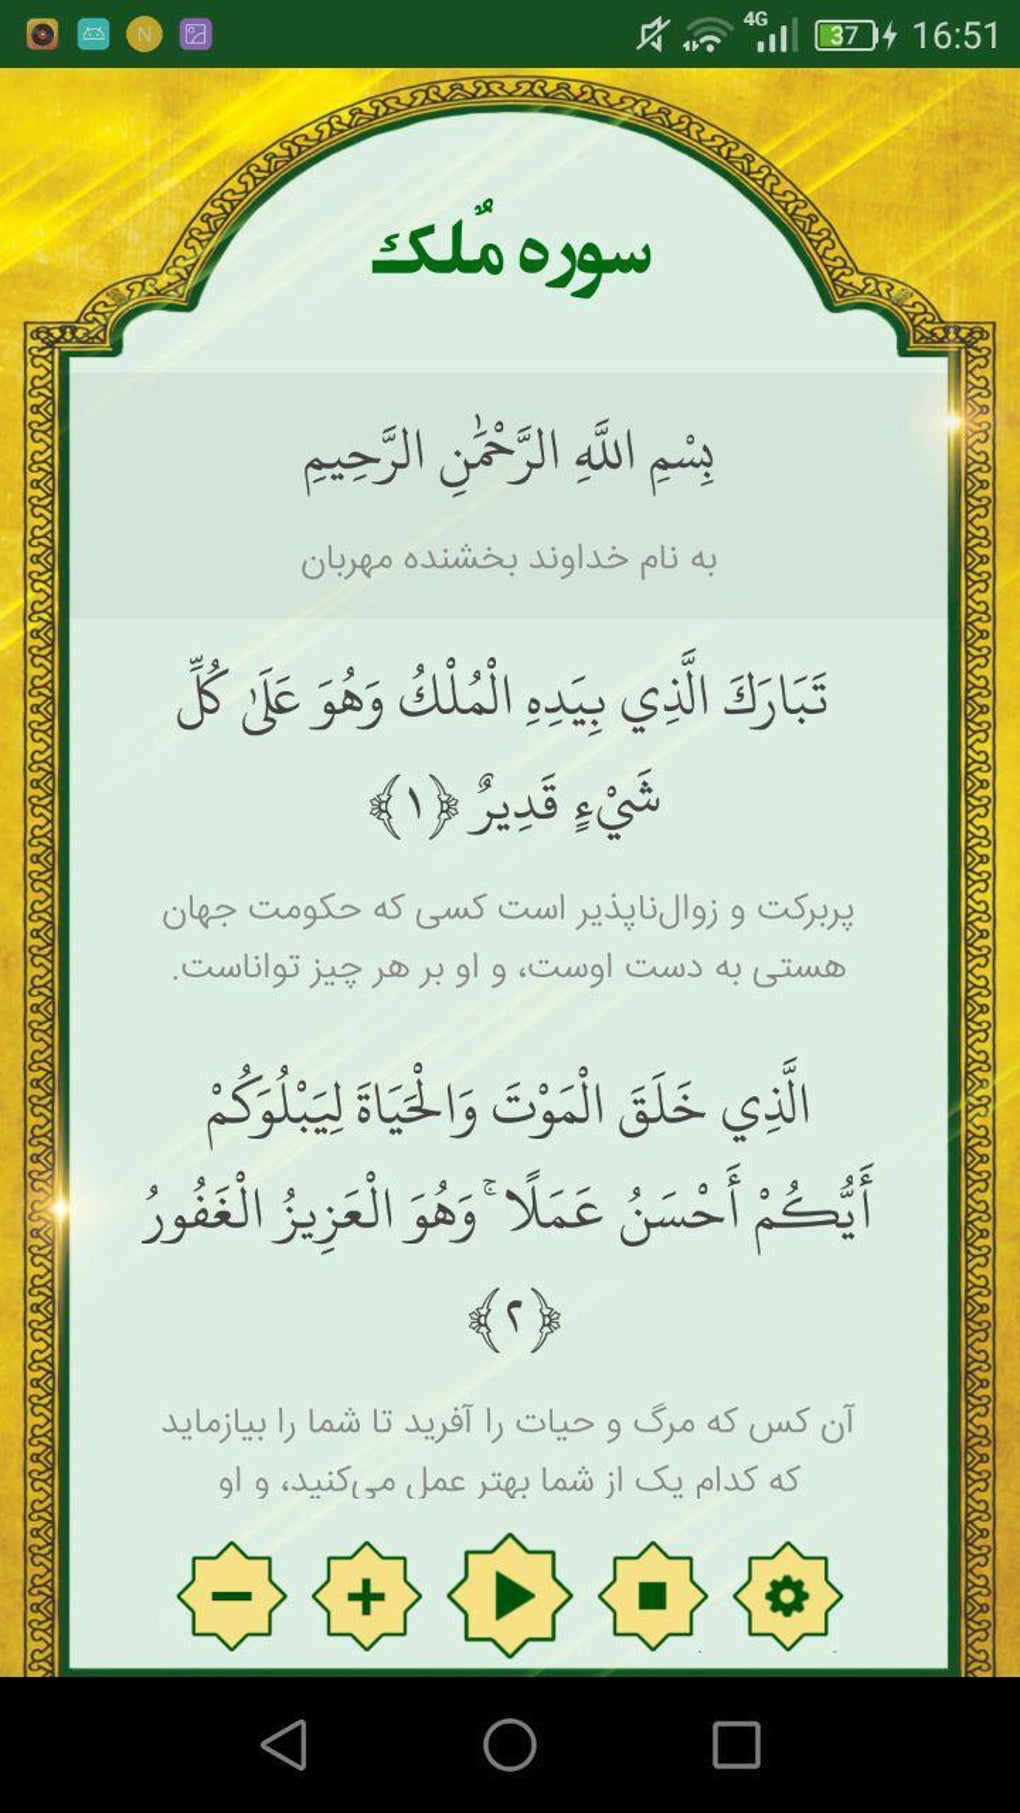 4G
37
16:51
N
سوره مُلک
بِسْمِ اللَّهِ الرَّحْمَٰنِ الرَّحِيمِ
به نام خداوند بخشنده مهربان
تَبَارَكَ الَّذِي بِيَدِهِ الْمُلْكُ وَهُوَ عَلَىٰ كُلِّ
شَيْءٍ قَدِيرٌ ﴿١﴾
پربرکت و زوال‌ناپذیر است کسی که حکومت جهان
هستی به دست اوست، و او بر هر چیز تواناست.
الَّذِي خَلَقَ الْمَوْتَ وَالْحَيَاةَ لِيَبْلُوَكُمْ
أَيُّكُمْ أَحْسَنُ عَمَلًا ۚ وَهُوَ الْعَزِيزُ الْغَفُورُ
﴿٢﴾
آن کس که مرگ و حیات را آفرید تا شما را بیازماید
که کدام یک از شما بهتر عمل می‌کنید، و او